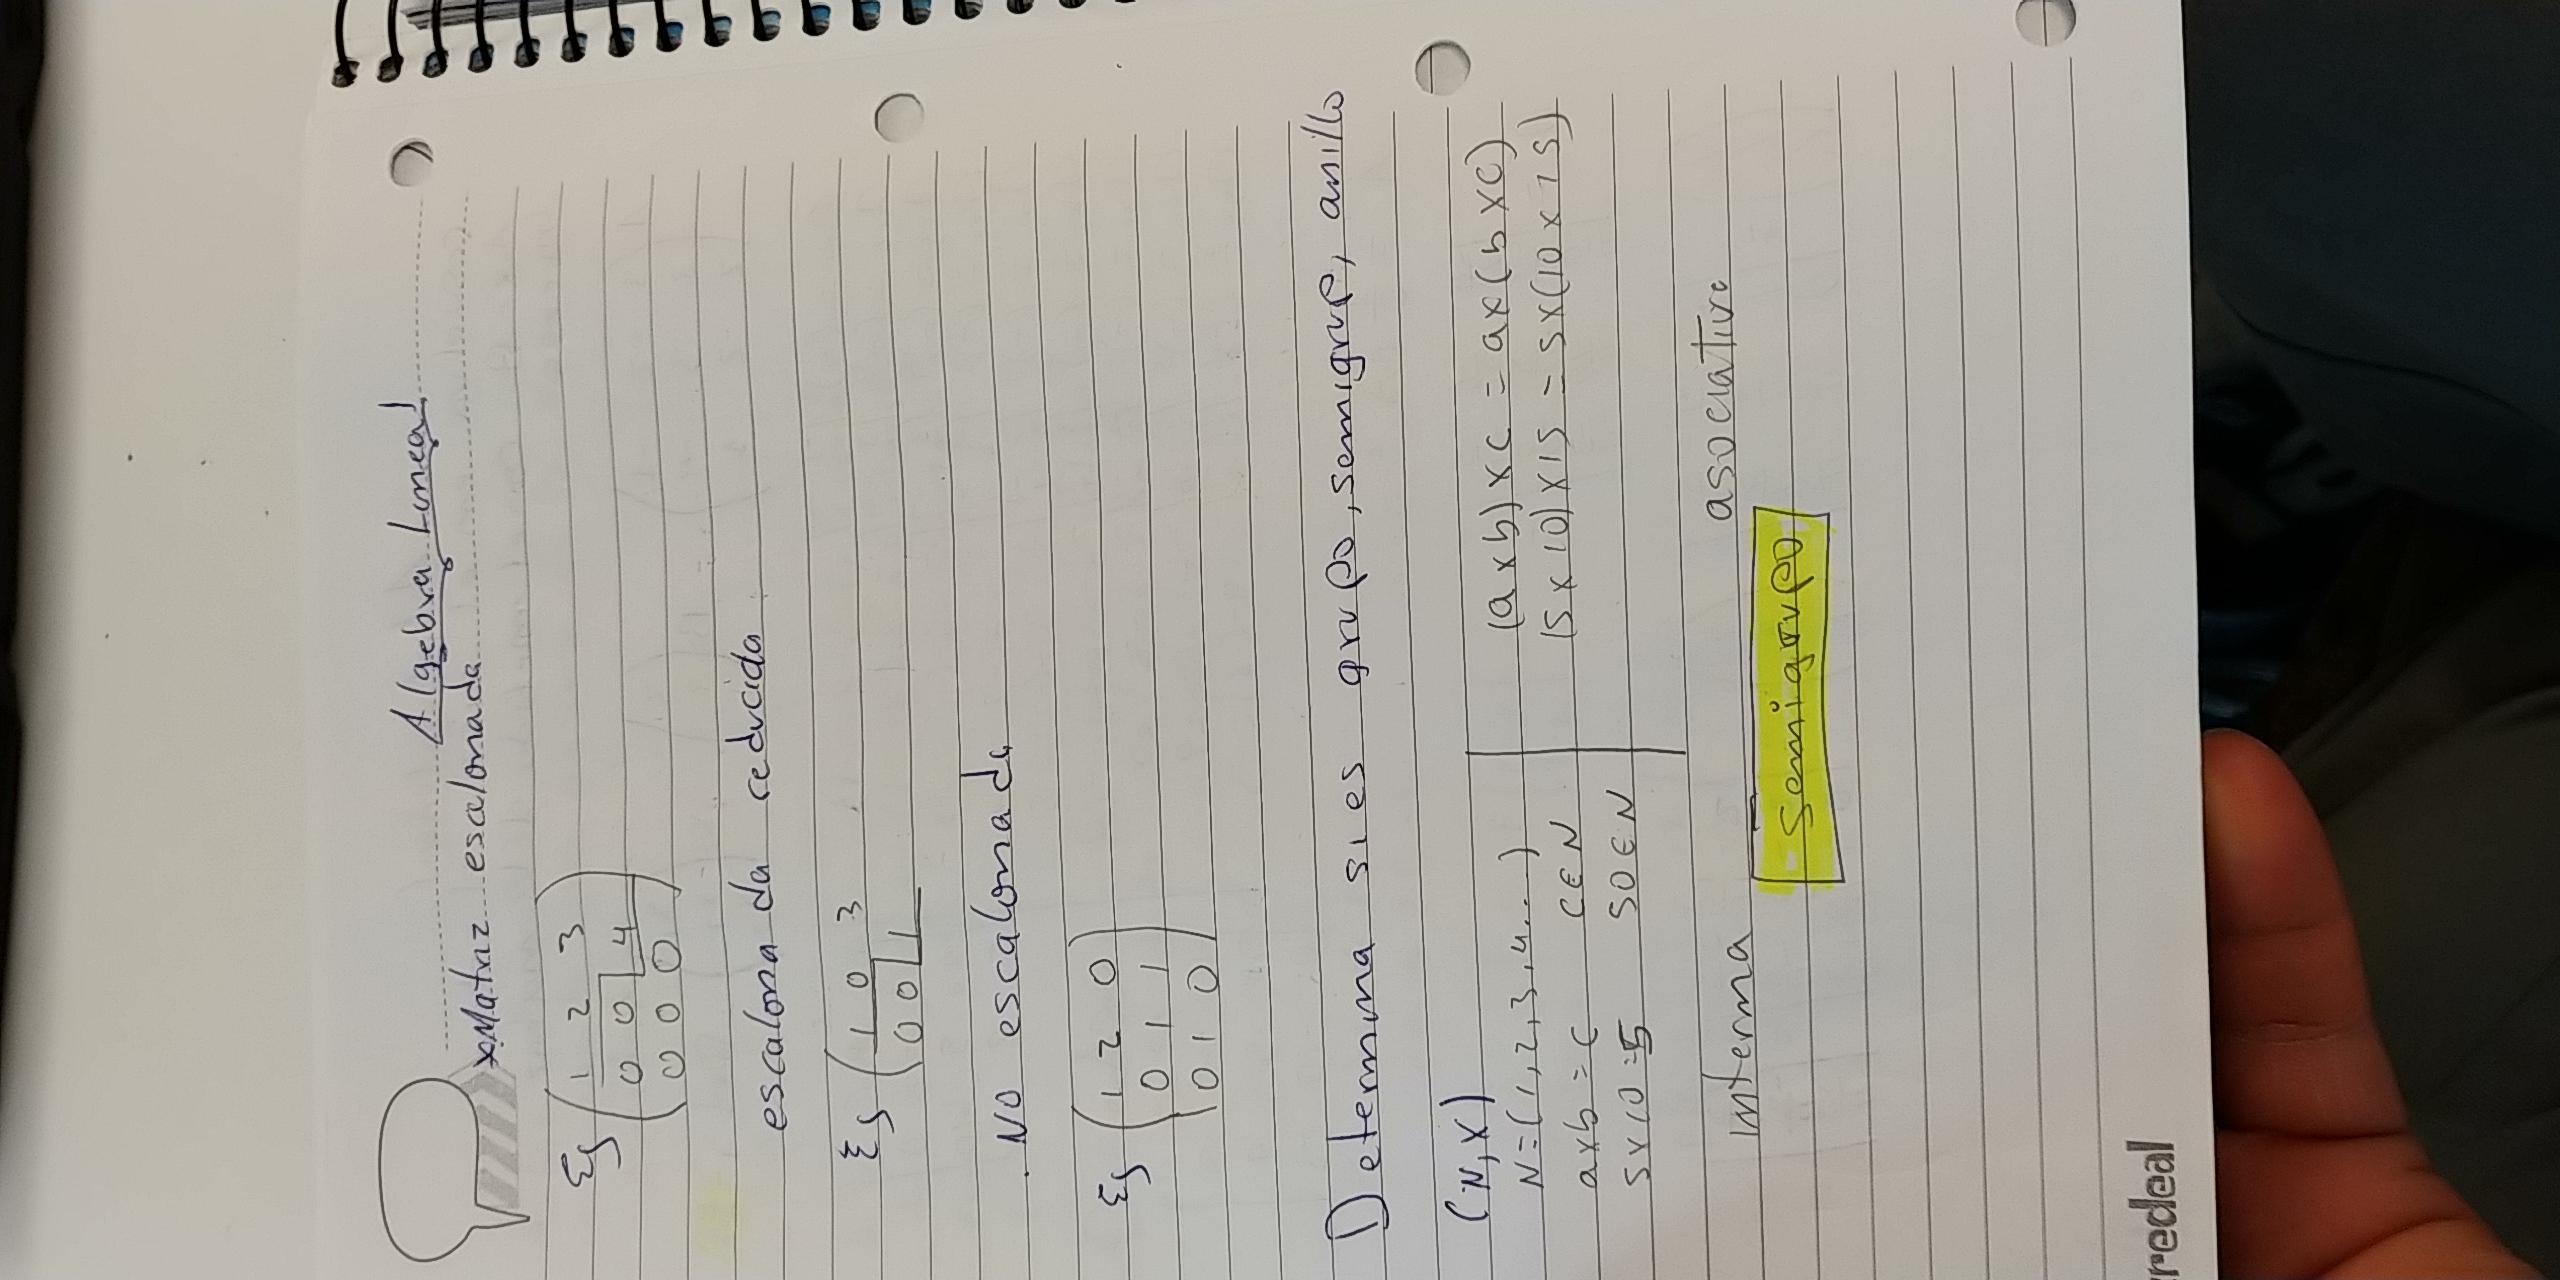 Algebra Lineal
*Matriz escalonada
Ej
1 2 3
0 0 4
0 0 0
escalonada reducida
Ej
1 0 3
0 0 1
. NO escalonada
Ej
1 2 0
0 1 1
0 1 0
Determina si es grupo, semigrup, anillo
(N,X)
N=(1,2,3,4..)
(axb)xc = ax(bxc)
axb = c   c∈N
(5x10)x15 = 5x(10x15)
5x10=5   50∈N
interna
asociativa
Semigrupo
redeal